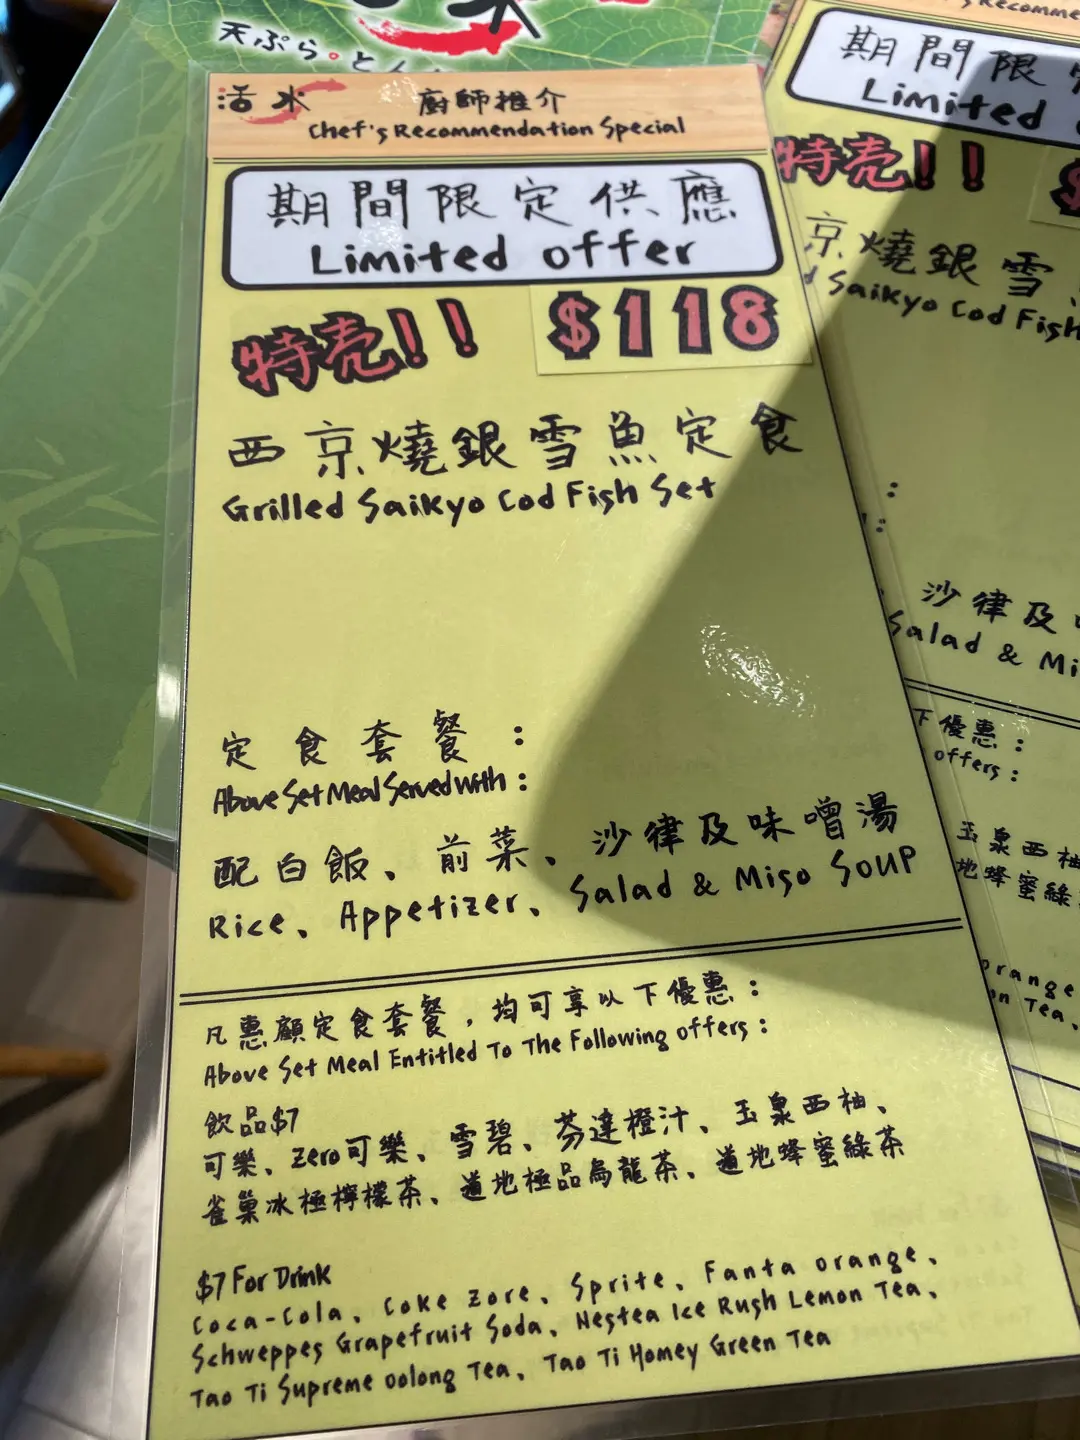 天ぷら。とん
活水
廚師推介
Chef's Recommendation Special
期間限定供應
Limited offer
特売!!
$118
西京燒銀雪魚定食
Grilled Saikyo Cod Fish Set
定食套餐：
Above Set Meal Served With：
配白飯、前菜、沙律及味噌湯
Rice、Appetizer、Salad & Miso Soup
凡惠顧定食套餐，均可享以下優惠：
Above Set Meal Entitled To The Following offers：
飲品$7
可樂、Zero可樂、雪碧、芬達橙汁、玉泉西柚、
雀巢冰極檸檬茶、道地極品烏龍茶、道地蜂蜜綠茶
$7 For Drink
Coca-Cola、Coke Zore、Sprite、Fanta orange、
Schweppes Grapefruit Soda、Nestea Ice Rush Lemon Tea、
Tao Ti Supreme oolong Tea、Tao Ti Homey Green Tea
期間限
Limited
特売!!
京燒銀雪
Saikyo Cod Fish
：
：
沙律及
Salad & Mi
下優惠：
offers：
玉泉西柚
地蜂蜜綠
orange
on Tea、